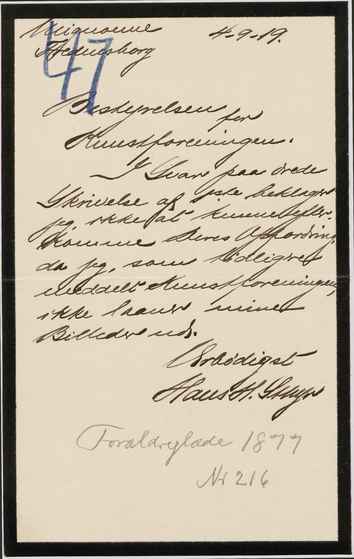 Mignonne
Hedinsborg
4-9-19.
47
Bestyrelsen
for
Kunstforeningen.
I Svar paa ærede
Skrivelse af 1ste beklager
jeg, ikke at kunne efter-
komme Deres Opfordring,
da jeg, som tidligere
meddelt Kunstforeningen,
ikke laaner mine
Billeder ud.
Ærbødigst
Hans H.
Forældreglæde 1877
Nr 216